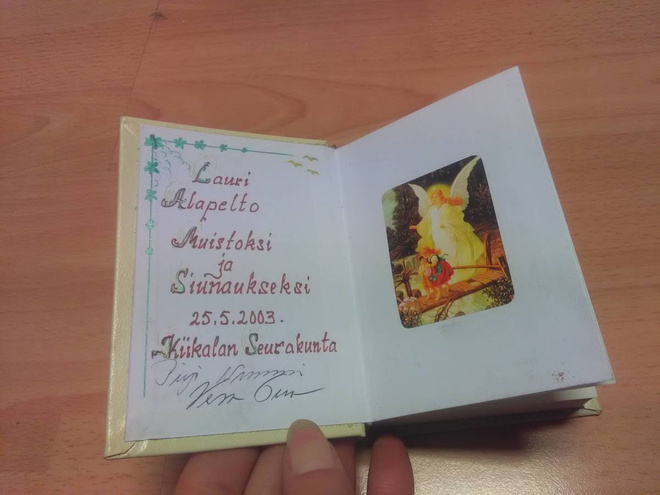 Lauri
Alapelto
Muistoksi
ja
Siunaukseksi
25.5.2003.
Kiikalan Seurakunta